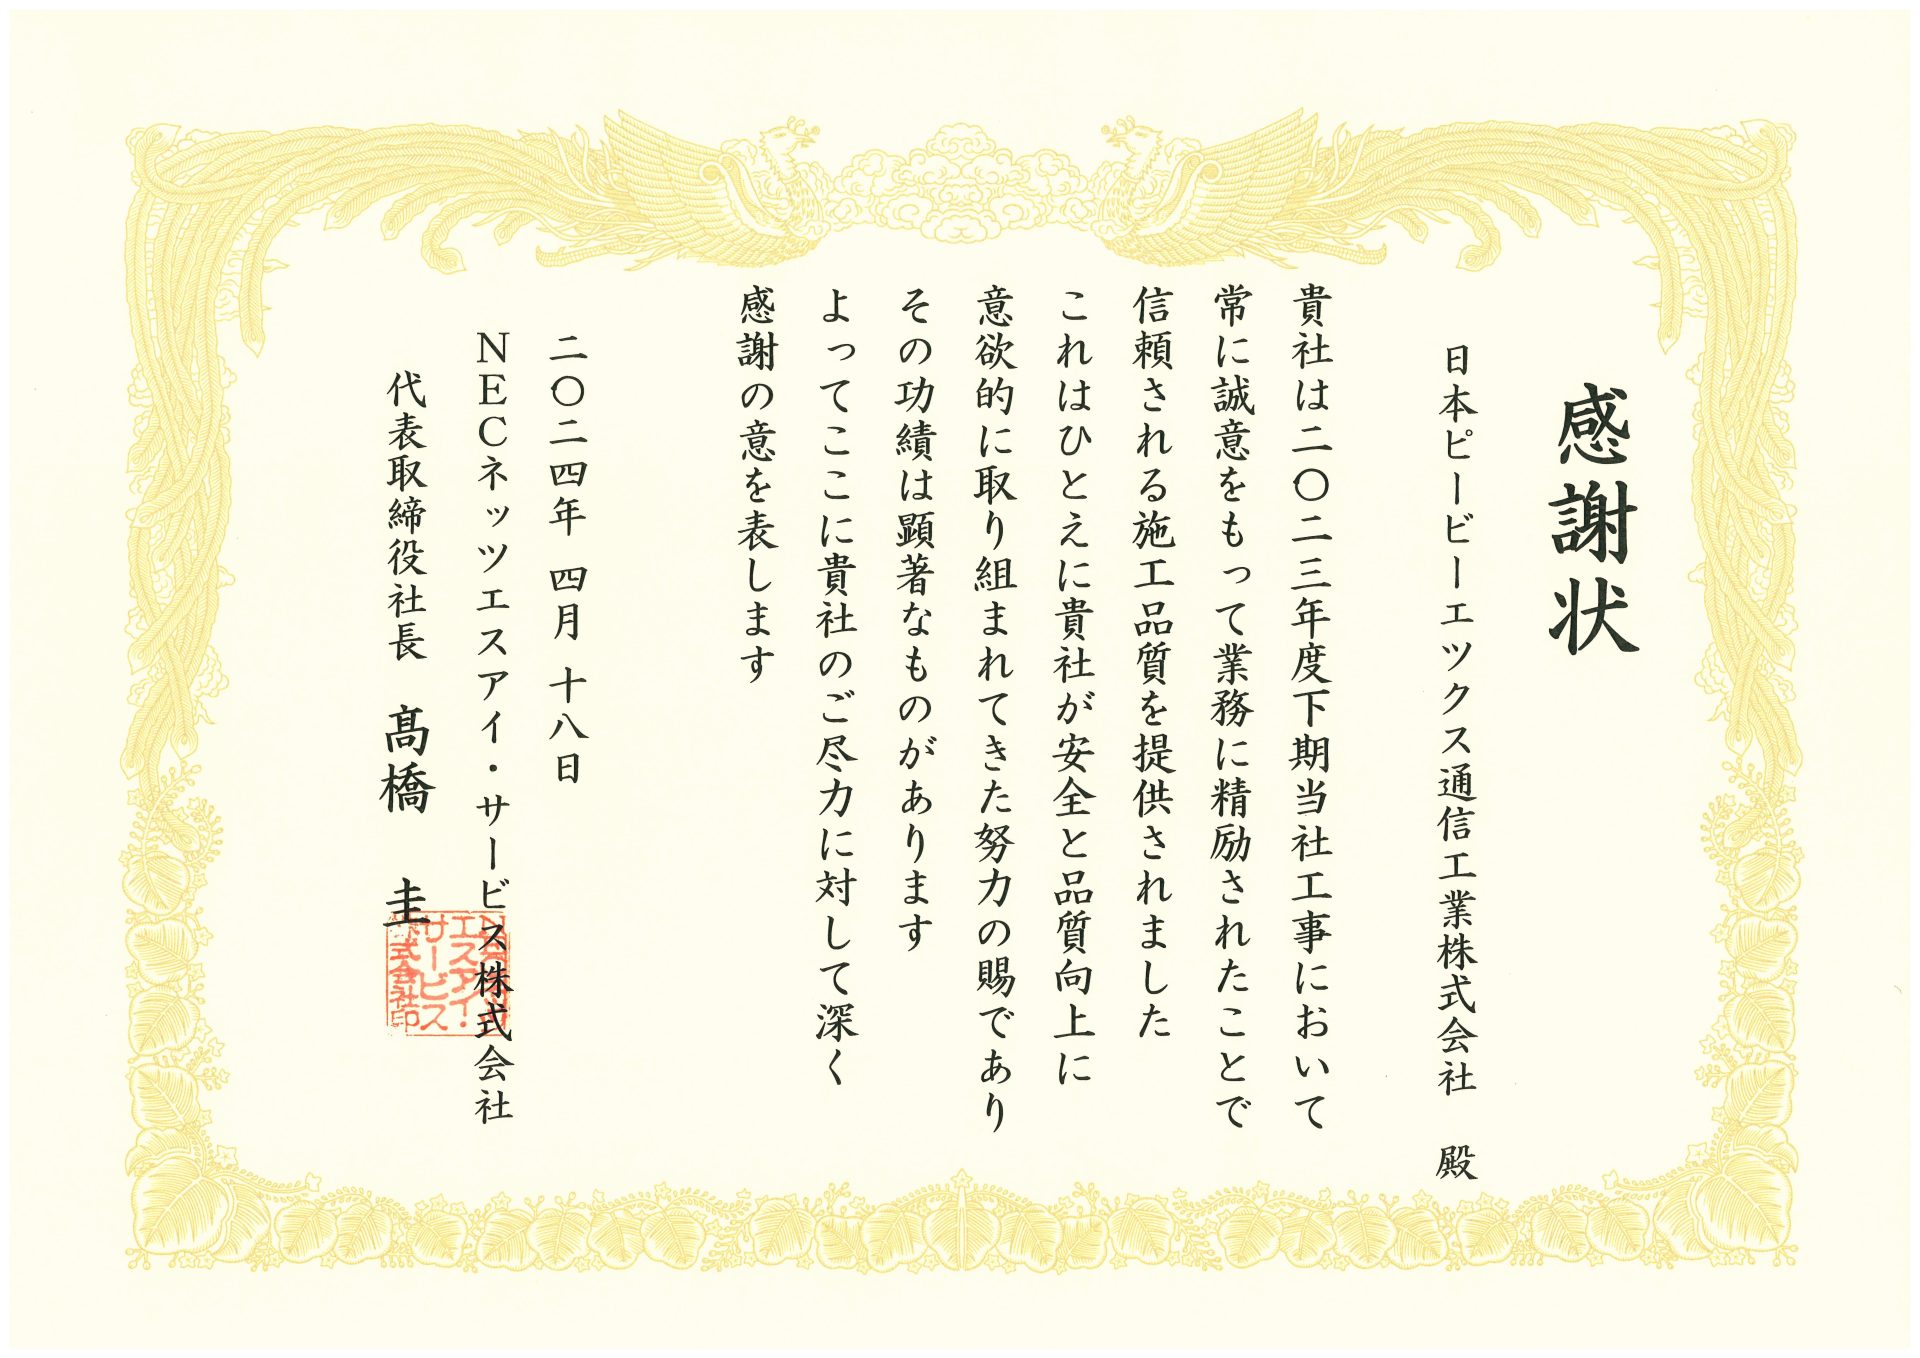 感謝状
日本ピービーエックス通信工業株式会社 殿
貴社は二〇二三年度下期当社工事において
常に誠意をもって業務に精励されたことで
信頼される施工品質を提供されました
これはひとえに貴社が安全と品質向上に
意欲的に取り組まれてきた努力の賜であり
その功績は顕著なものがあります
よってここに貴社のご尽力に対して深く
感謝の意を表します
二〇二四年 四月 十八日
NECネッツエスアイ・サービス株式会社
代表取締役社長 髙橋 圭
エスアイ・
サービス
株式会社印